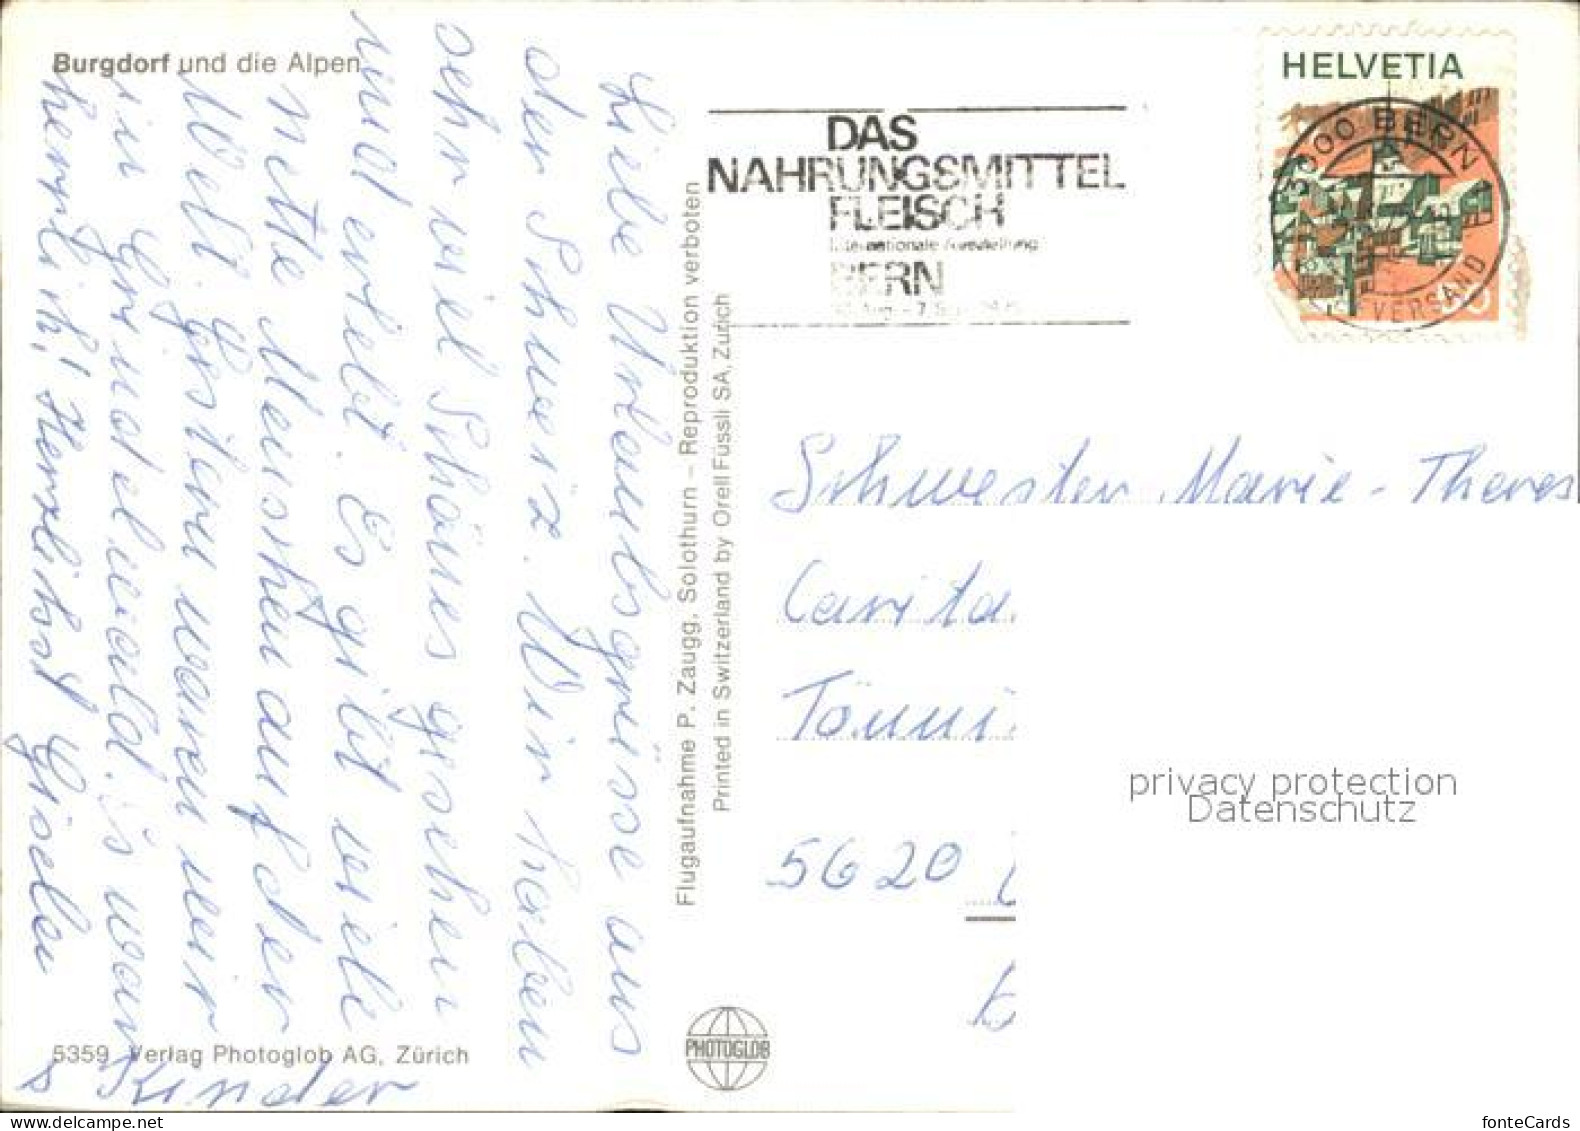 Burgdorf und die Alpen
Liebe Urlaubsgrüsse aus
der Schweiz. Wir haben
sehr viel Schönes gesehen
und erlebt. Es gibt viele
nette Menschen auf der
Welt. Gestern waren wir
in Grindelwald. Es war
herrlich! Herzlichst Gisela
&amp; Kinder
5359 Verlag Photoglob AG, Zürich
Flugaufnahme P. Zaugg, Solothurn – Reproduktion verboten
Printed in Switzerland by Orell Füssli SA, Zürich
PHOTOGLOB
DAS
NAHRUNGSMITTEL
FLEISCH
Internationale Ausstellung
BERN
HELVETIA
3000 BERN
VERSAND
Schwester Marie-Theres
Carita
Tönni
5620
privacy protection
Datenschutz
fonteCards